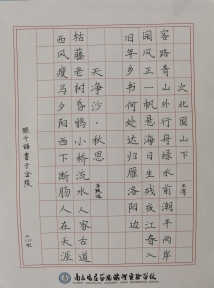 次北固山下 王湾
客路青山外行舟绿水前潮平两岸
阔风正一帆悬海日生残夜江春入
旧年乡书何处达归雁洛阳边
天净沙·秋思 马致远
枯藤老树昏鸦小桥流水人家古道
西风瘦马夕阳西下断肠人在天涯
书于金陵
实验学校